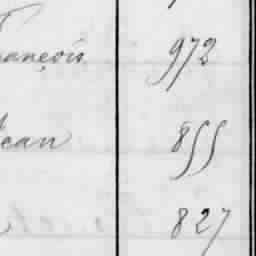 François 972
Jean 855
827